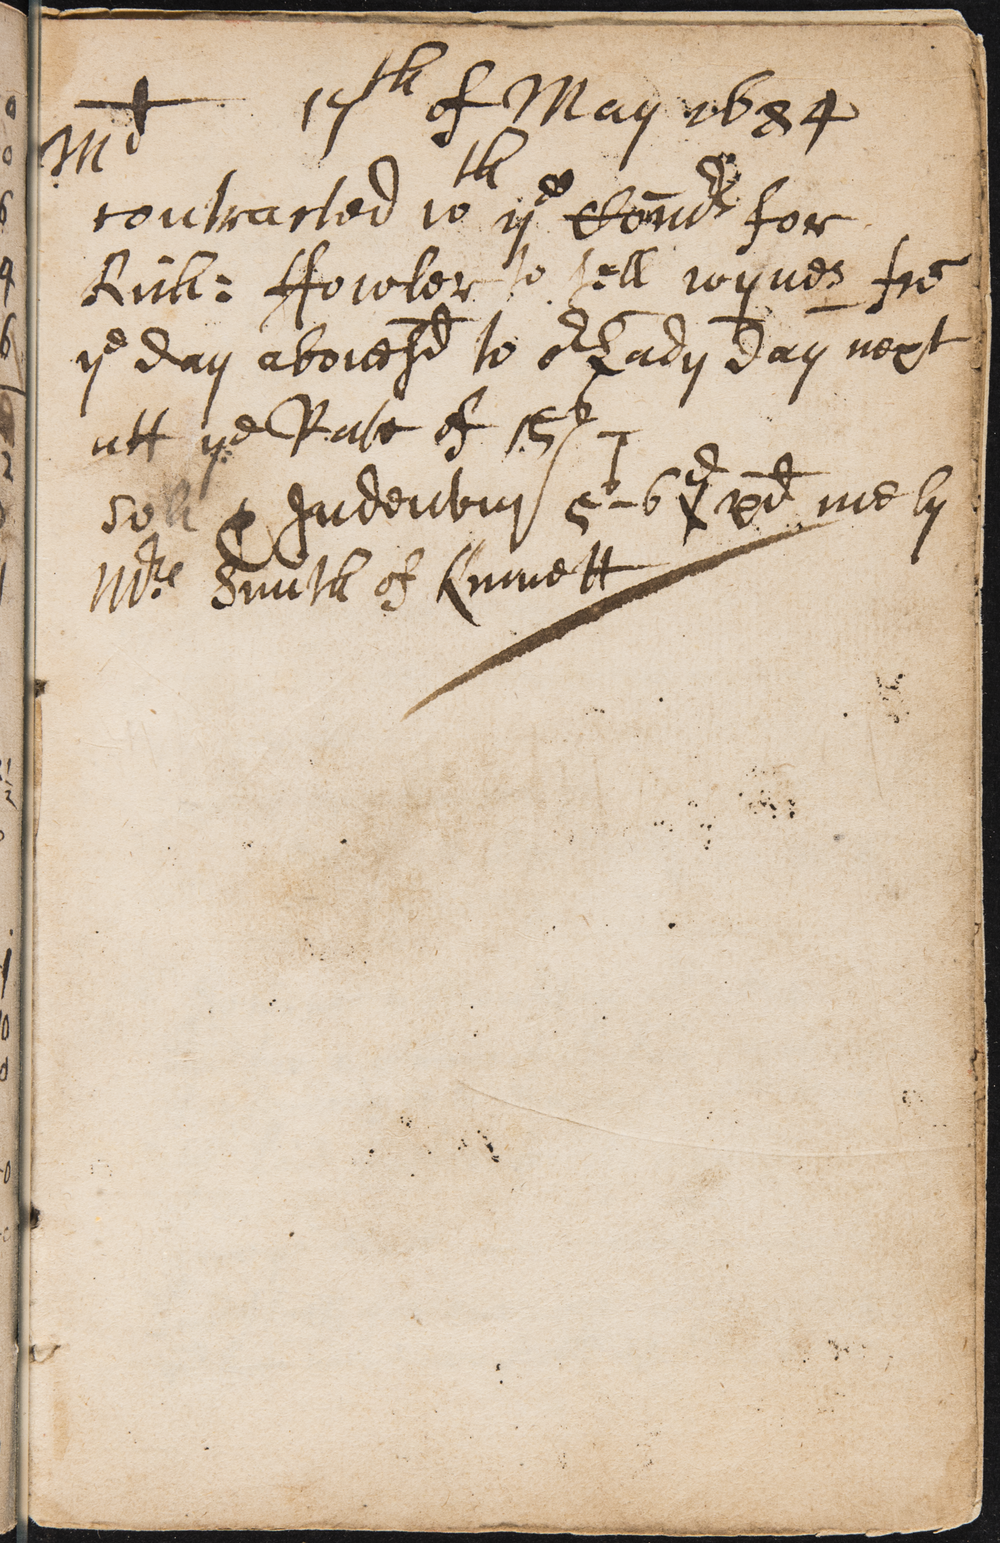 17th of May 1684
Md
contracted wth ye Comrs for
Rich: Howler to sell wynes frō
ye day abovesd to or Lady day next
att ye Rate of 15s
Indentur 5s-6d pd me by
Mrs Smith of